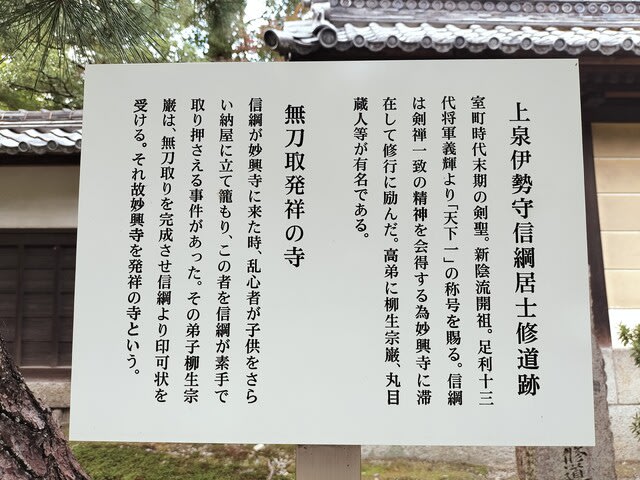 上泉伊勢守信綱居士修道跡
室町時代末期の剣聖。新陰流開祖。足利十三
代将軍義輝より「天下一」の称号を賜る。信綱
は剣禅一致の精神を会得する為妙興寺に滞
在して修行に励んだ。高弟に柳生宗厳、丸目
蔵人等が有名である。
無刀取発祥の寺
信綱が妙興寺に来た時、乱心者が子供をさら
い納屋に立て籠もり、この者を信綱が素手で
取り押さえる事件があった。その弟子柳生宗
厳は、無刀取りを完成させ信綱より印可状を
受ける。それ故妙興寺を発祥の寺という。